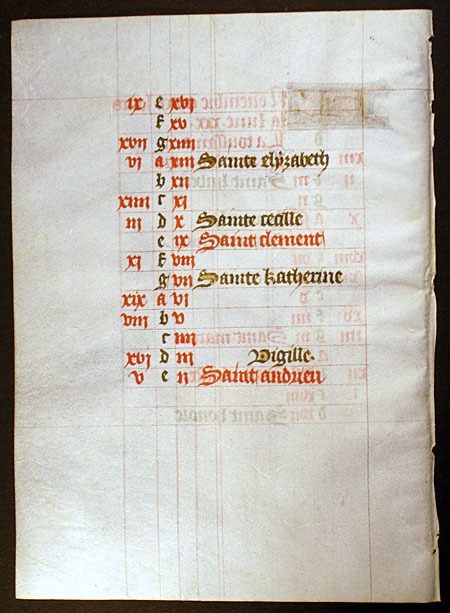 ix e xvi
f xv
xvii g xiiii
vi a xiii Sainte elyzabeth
b xii
xiiii c xi
iii d x Sainte cecille
e ix Saint clement
xi f viii
g vii Sainte katherine
xix a vi
viii b v
c iiii
xvi d iii Vigille.
v e ii Saint andrieu